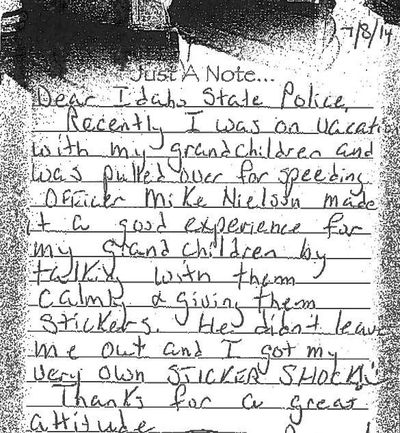 7/8/14
Just A Note...
Dear Idaho State Police,
Recently I was on vacatio
with my grandchildren and
was pulled over for speeding
Officer Mike Nielson made
it a good experience for
my grandchildren by
talking with them
calmly & giving them
stickers. He didn't leave
me out and I got my
very own STICKER SHOCK!
Thanks for a great
attitude